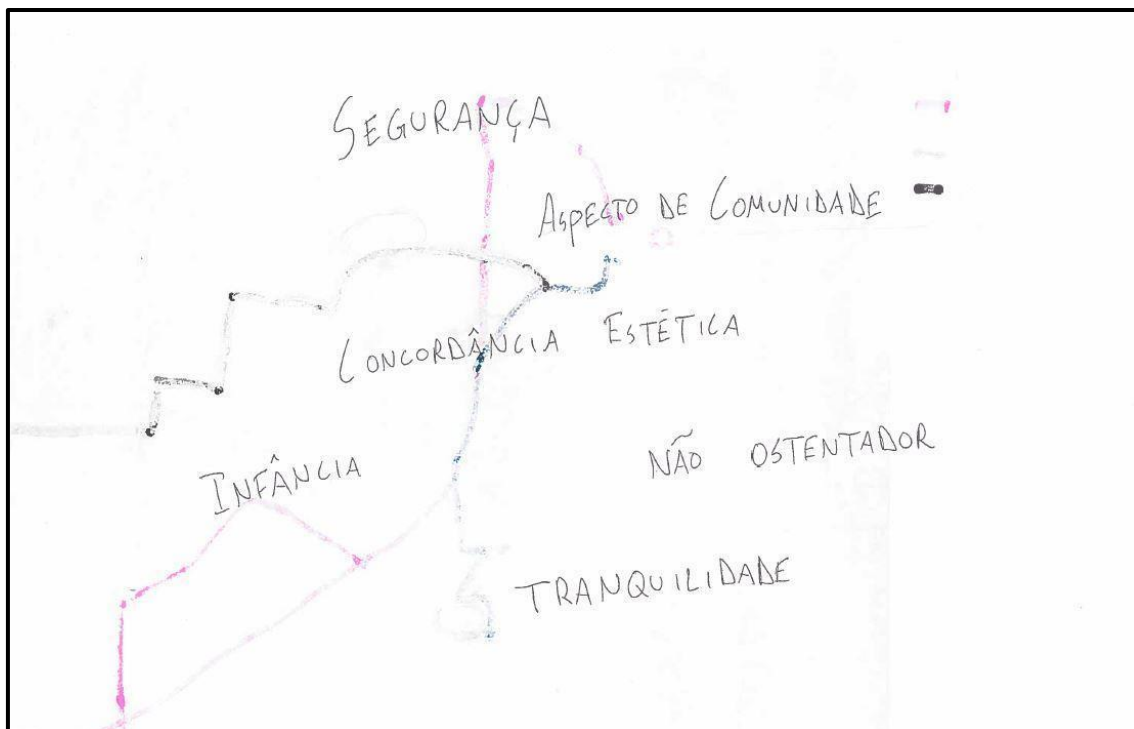 SEGURANÇA
ASPECTO DE COMUNIDADE
CONCORDÂNCIA ESTÉTICA
INFÂNCIA
NÃO OSTENTADOR
TRANQUILIDADE